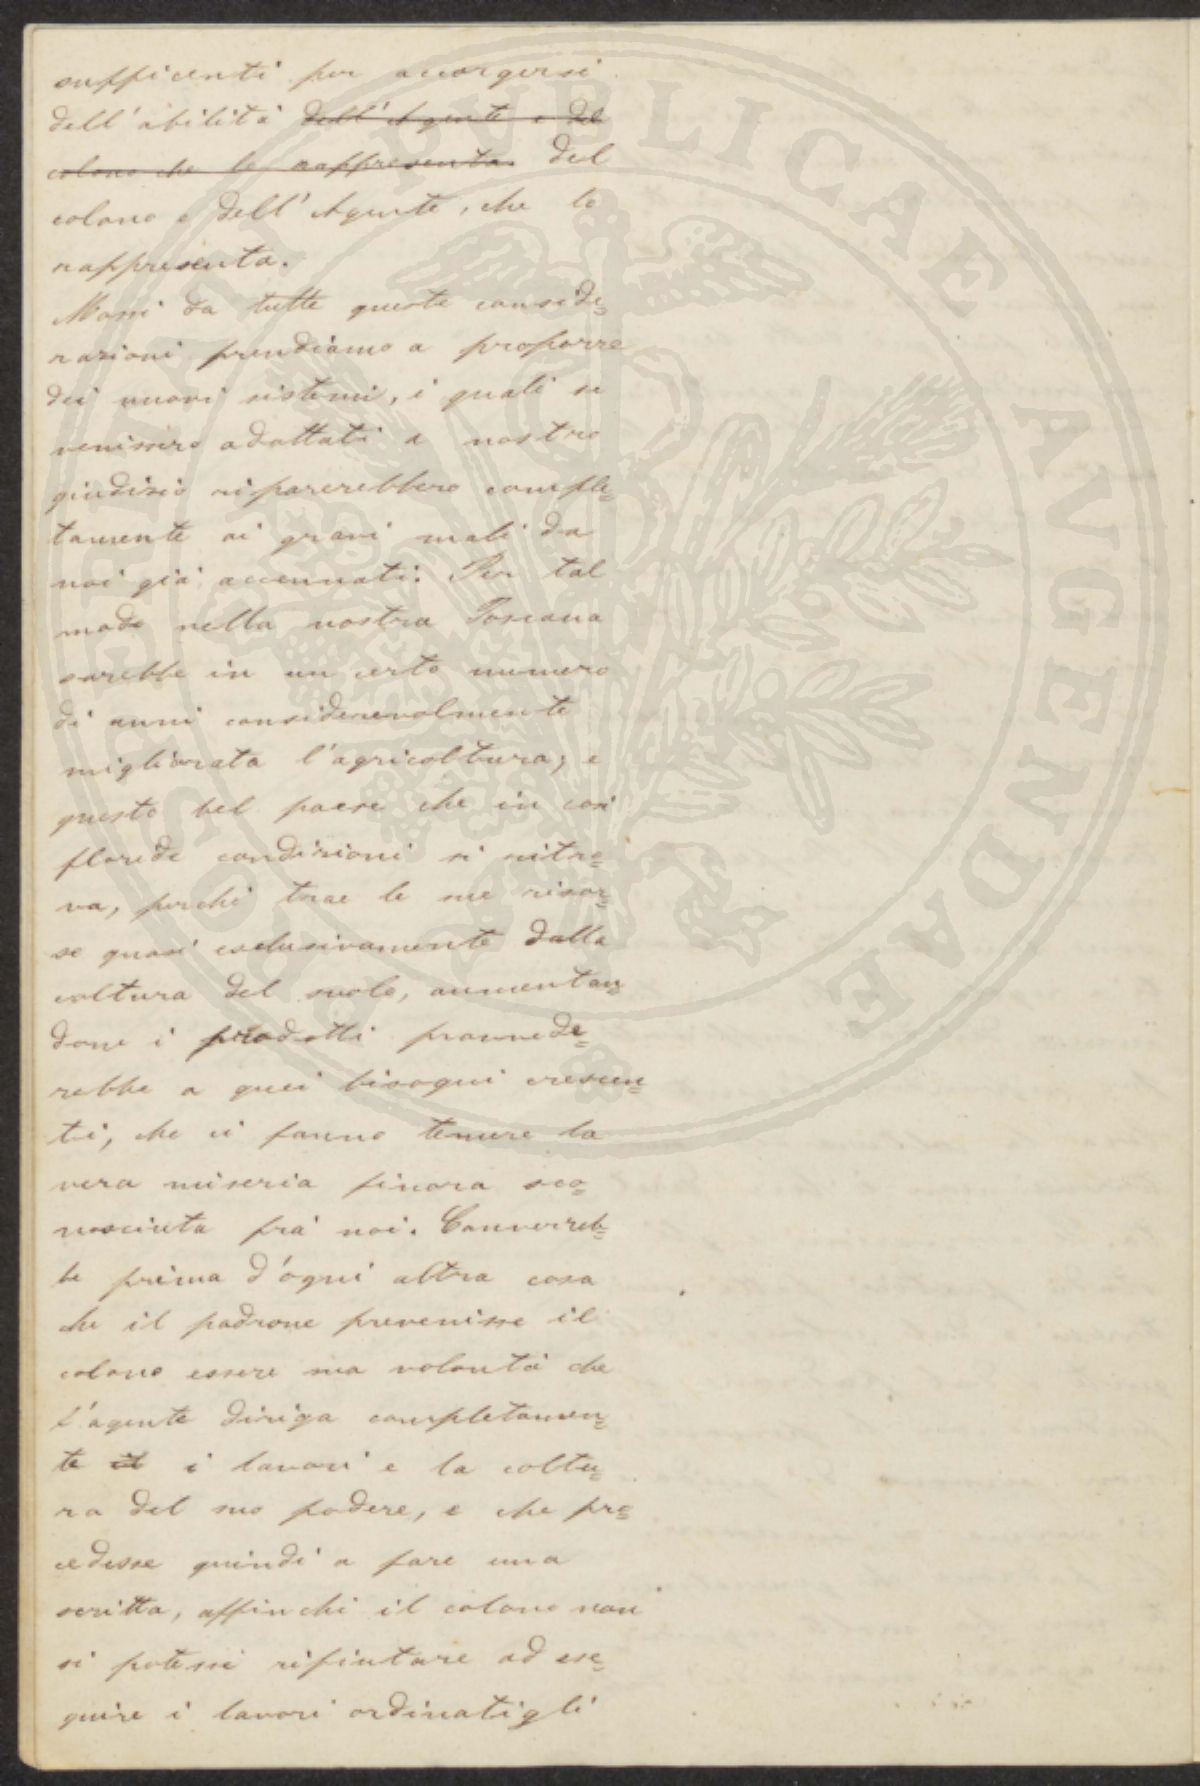 sufficenti per accorgersi
dell'abilità dell'Agente e del
colono che lo rappresenta. del
colono e dell'Agente, che lo
rappresenta.
Mossi da tutte queste conside=
razioni prendiamo a proporre
dei nuovi sistemi, i quali se
venissero adottati a nostro
giudizio riparerebbero comple=
tamente ai gravi mali da
noi già accennati. Per tal
modo nella nostra Toscana
sarebbe in un certo numero
di anni considerevolmente
migliorata l'agricoltura; e
questo bel paese che in così
floride condizioni si ritro=
va, perchè trae le sue risor=
se quasi esclusivamente dalla
coltura del suolo, aumentan=
done i prodotti provvede=
rebbe a quei bisogni crescen=
ti, che ci fanno temere la
vera miseria finora sco=
nosciuta frà noi. Converreb=
be prima d'ogni altra cosa
che il padrone prevenisse il
colono essere sua volontà che
l'agente diriga completamen=
te il i lavori e la coltu=
ra del suo podere, e che pro=
cedesse quindi a fare una
scritta, affinchè il colono non
si potesse rifiutare ad ese=
guire i lavori ordinatigli
PUBLICAE AVGENDAE